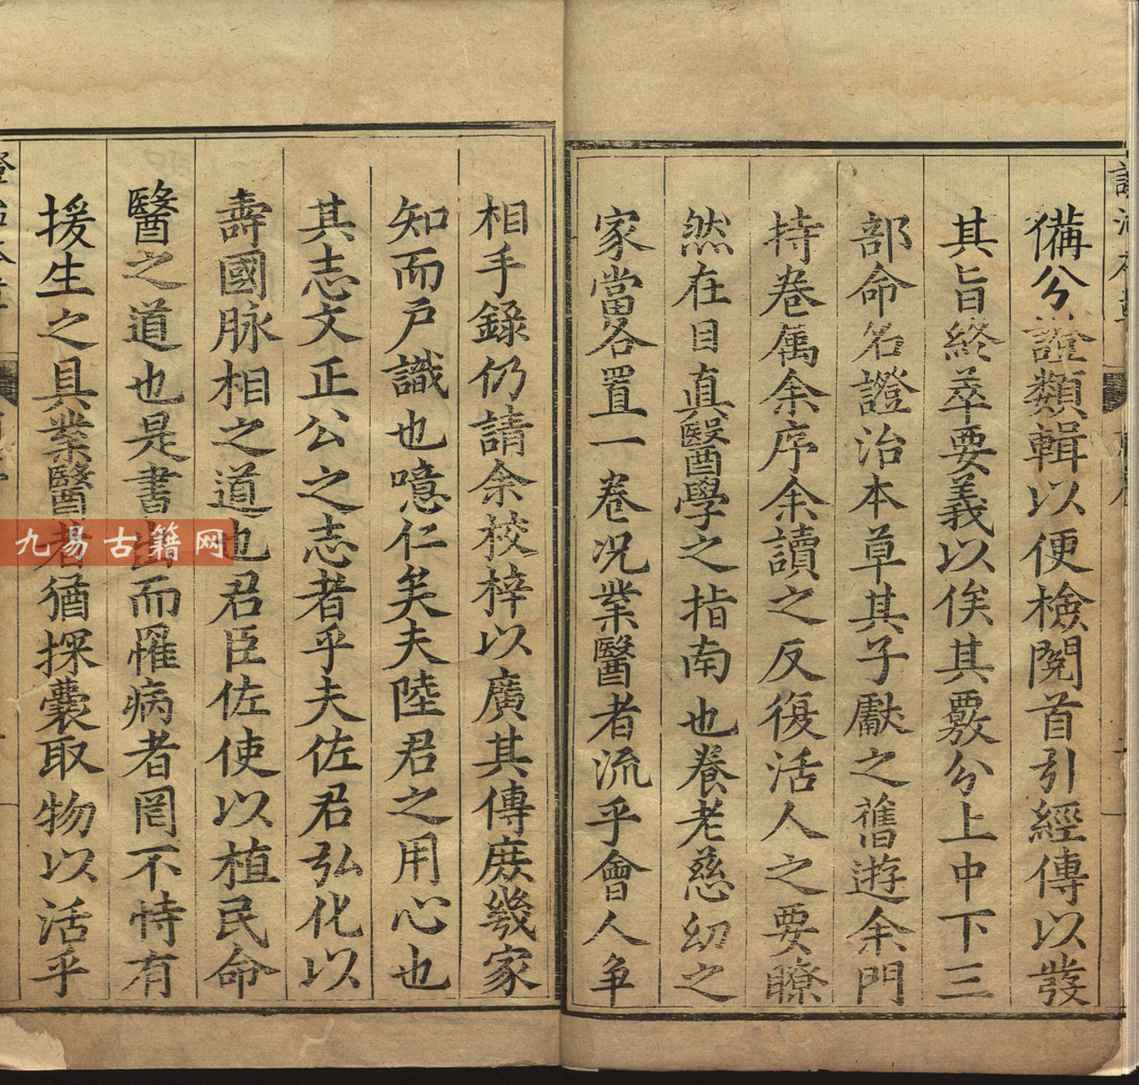 備分證類輯以便檢閱首引經傳以發
其旨終萃要義以俟其覈分上中下三
部命名證治本草其子獻之舊遊余門
持卷属余序余讀之反復活人之要瞭
然在目真醫學之指南也養老慈幼之
家當各置一卷况業醫者流乎會人争
相手錄仍請余校梓以廣其傳庻幾家
知而戸識也噫仁矣夫陸君之用心也
其志文正公之志者乎夫佐君弘化以
壽國脉相之道也君臣佐使以植民命
醫之道也是書出而罹病者罔不恃有
援生之具業醫者猶探囊取物以活乎
九易古籍网